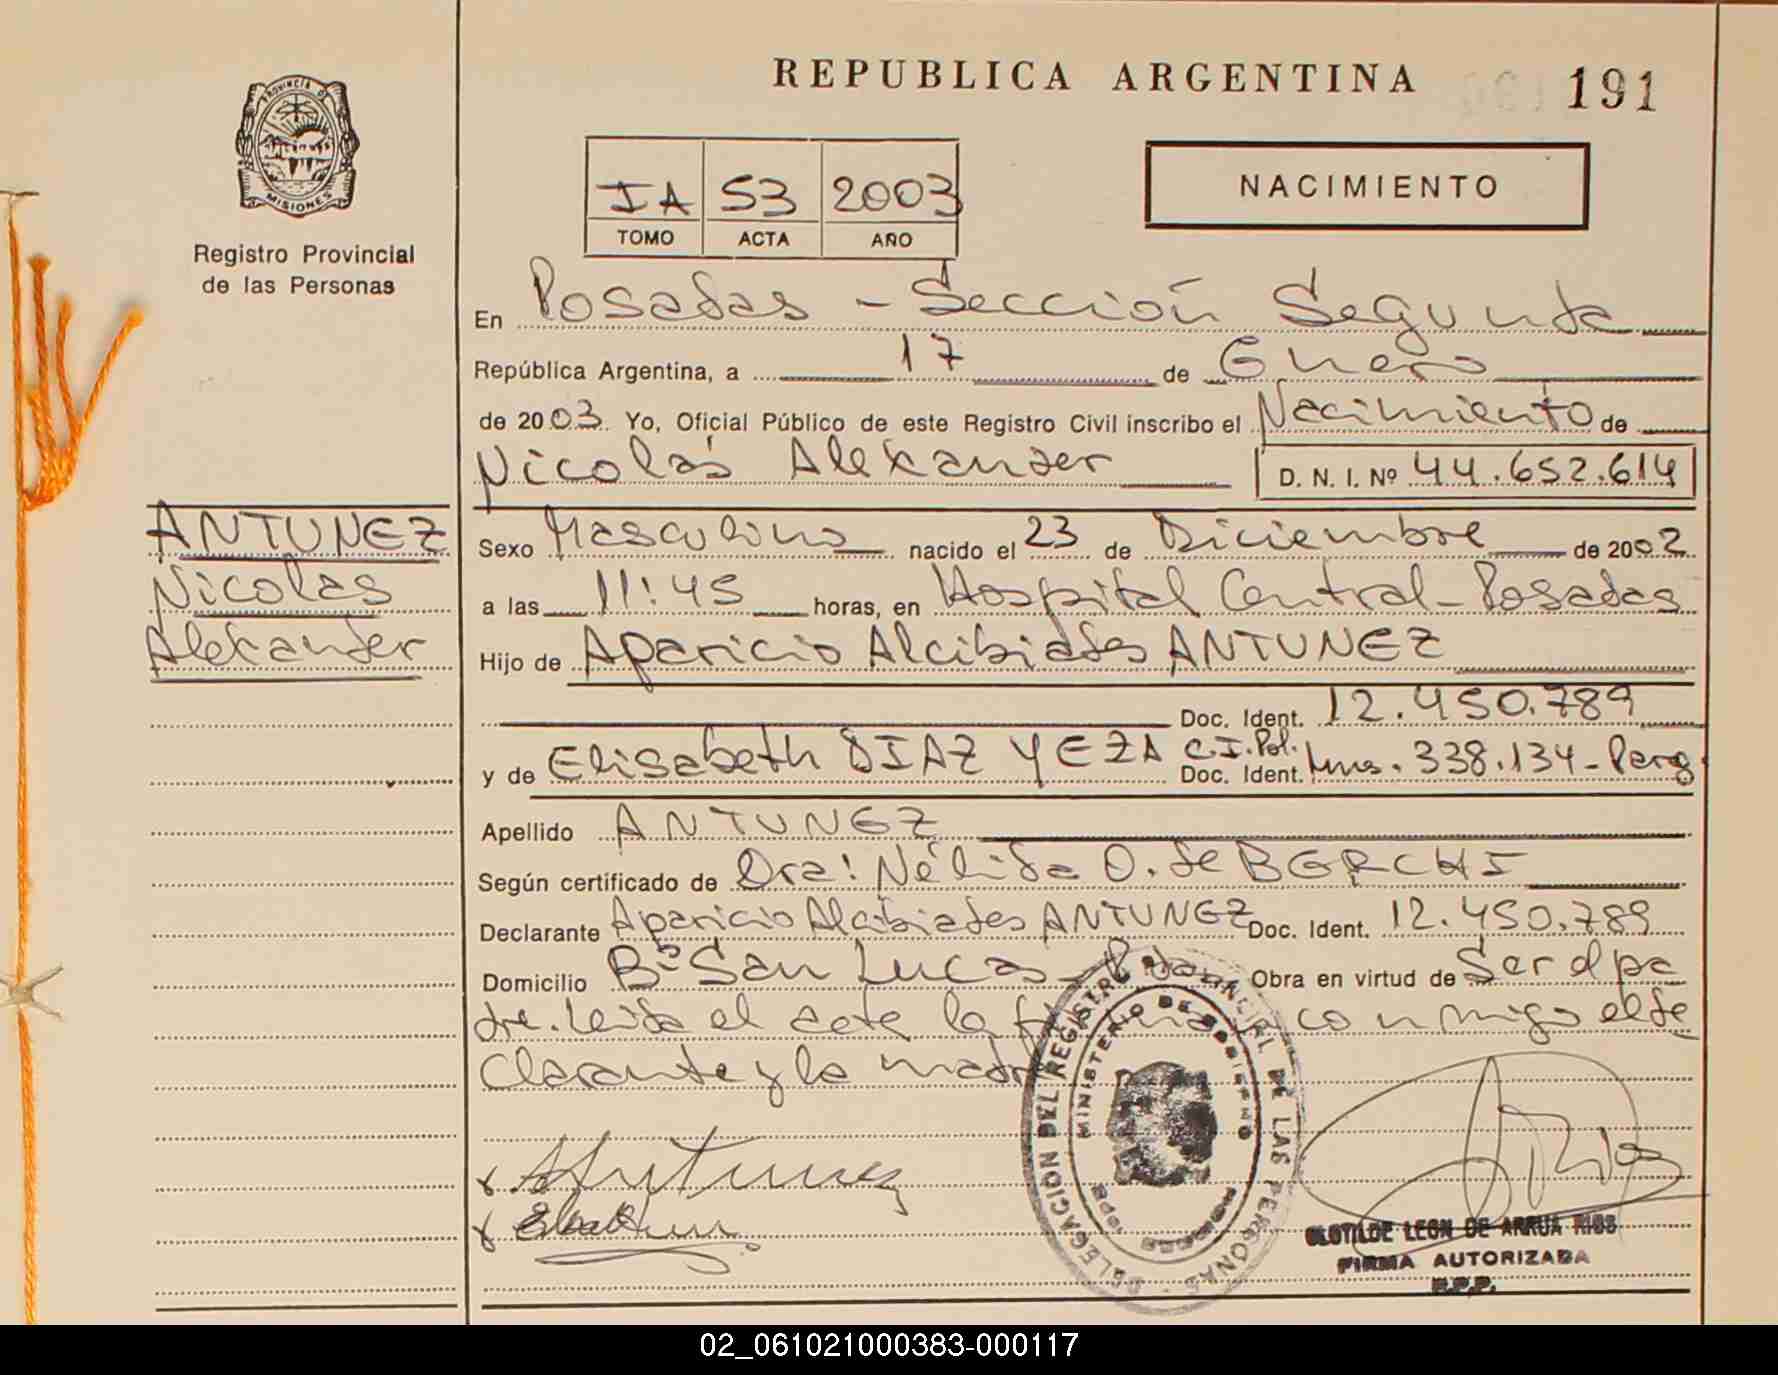 REPUBLICA ARGENTINA
191
PROVINCIA DE
MISIONES
Registro Provincial
de las Personas
IA 53 2003
TOMO ACTA AÑO
NACIMIENTO
En Posadas - Sección Segunda
República Argentina, a 17 de Enero
de 2003 Yo, Oficial Público de este Registro Civil inscribo el Nacimiento de
Nicolás Alexander D. N. I. Nº 44.652.614
ANTUNEZ
Nicolas
Alexander
Sexo Masculino nacido el 23 de Diciembre de 2002
a las 11:45 horas, en Hospital Central - Posadas
Hijo de Aparicio Alcibiades ANTUNEZ
Doc. Ident. 12.450.789
y de Elisabeth DIAZ YEZA C.I. Pol. Doc. Ident. 338.134 - Parag
Apellido ANTUNEZ
Según certificado de Dra: Nélida O. de BERCHI
Declarante Aparicio Alcibiades ANTUNEZ Doc. Ident. 12.450.789
Domicilio Bº San Lucas - Obra en virtud de Ser el pa
dre. Leida el acta la conmigo el de
clarante y la madre
DELEGACION DEL REGISTRO PROVINCIAL DE LAS PERSONAS
MINISTERIO DE GOBIERNO
Antunez
CLOTILDE LEON DE ARRUA RIOS
FIRMA AUTORIZADA
R.P.P.
02_061021000383-000117